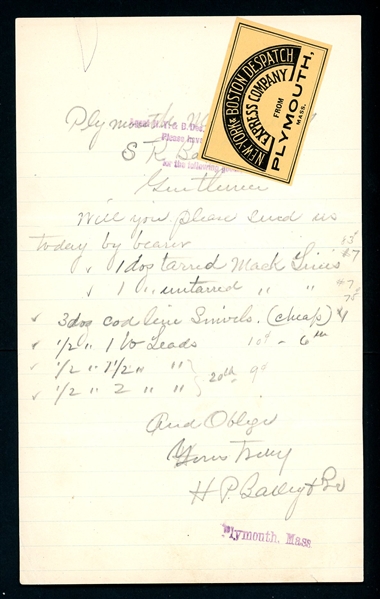 NEW YORK & BOSTON DESPATCH
EXPRESS COMPANY
FROM
PLYMOUTH,
MASS.
Plymouth
Please have
S. R. Ba
for the following
Gentlemen
Will you please send us
today by bearer
1 doz tarred Mack Lines
1 " untarred " "
3 doz cod line Swivels. (cheap)
1/2 " 1 lb Leads 10¢ - 6
1/2 " 1 1/2 " " 20 9¢
1/2 " 2 " "
And Oblige
Yours Truly
H P Bailey & Co
Plymouth, Mass.